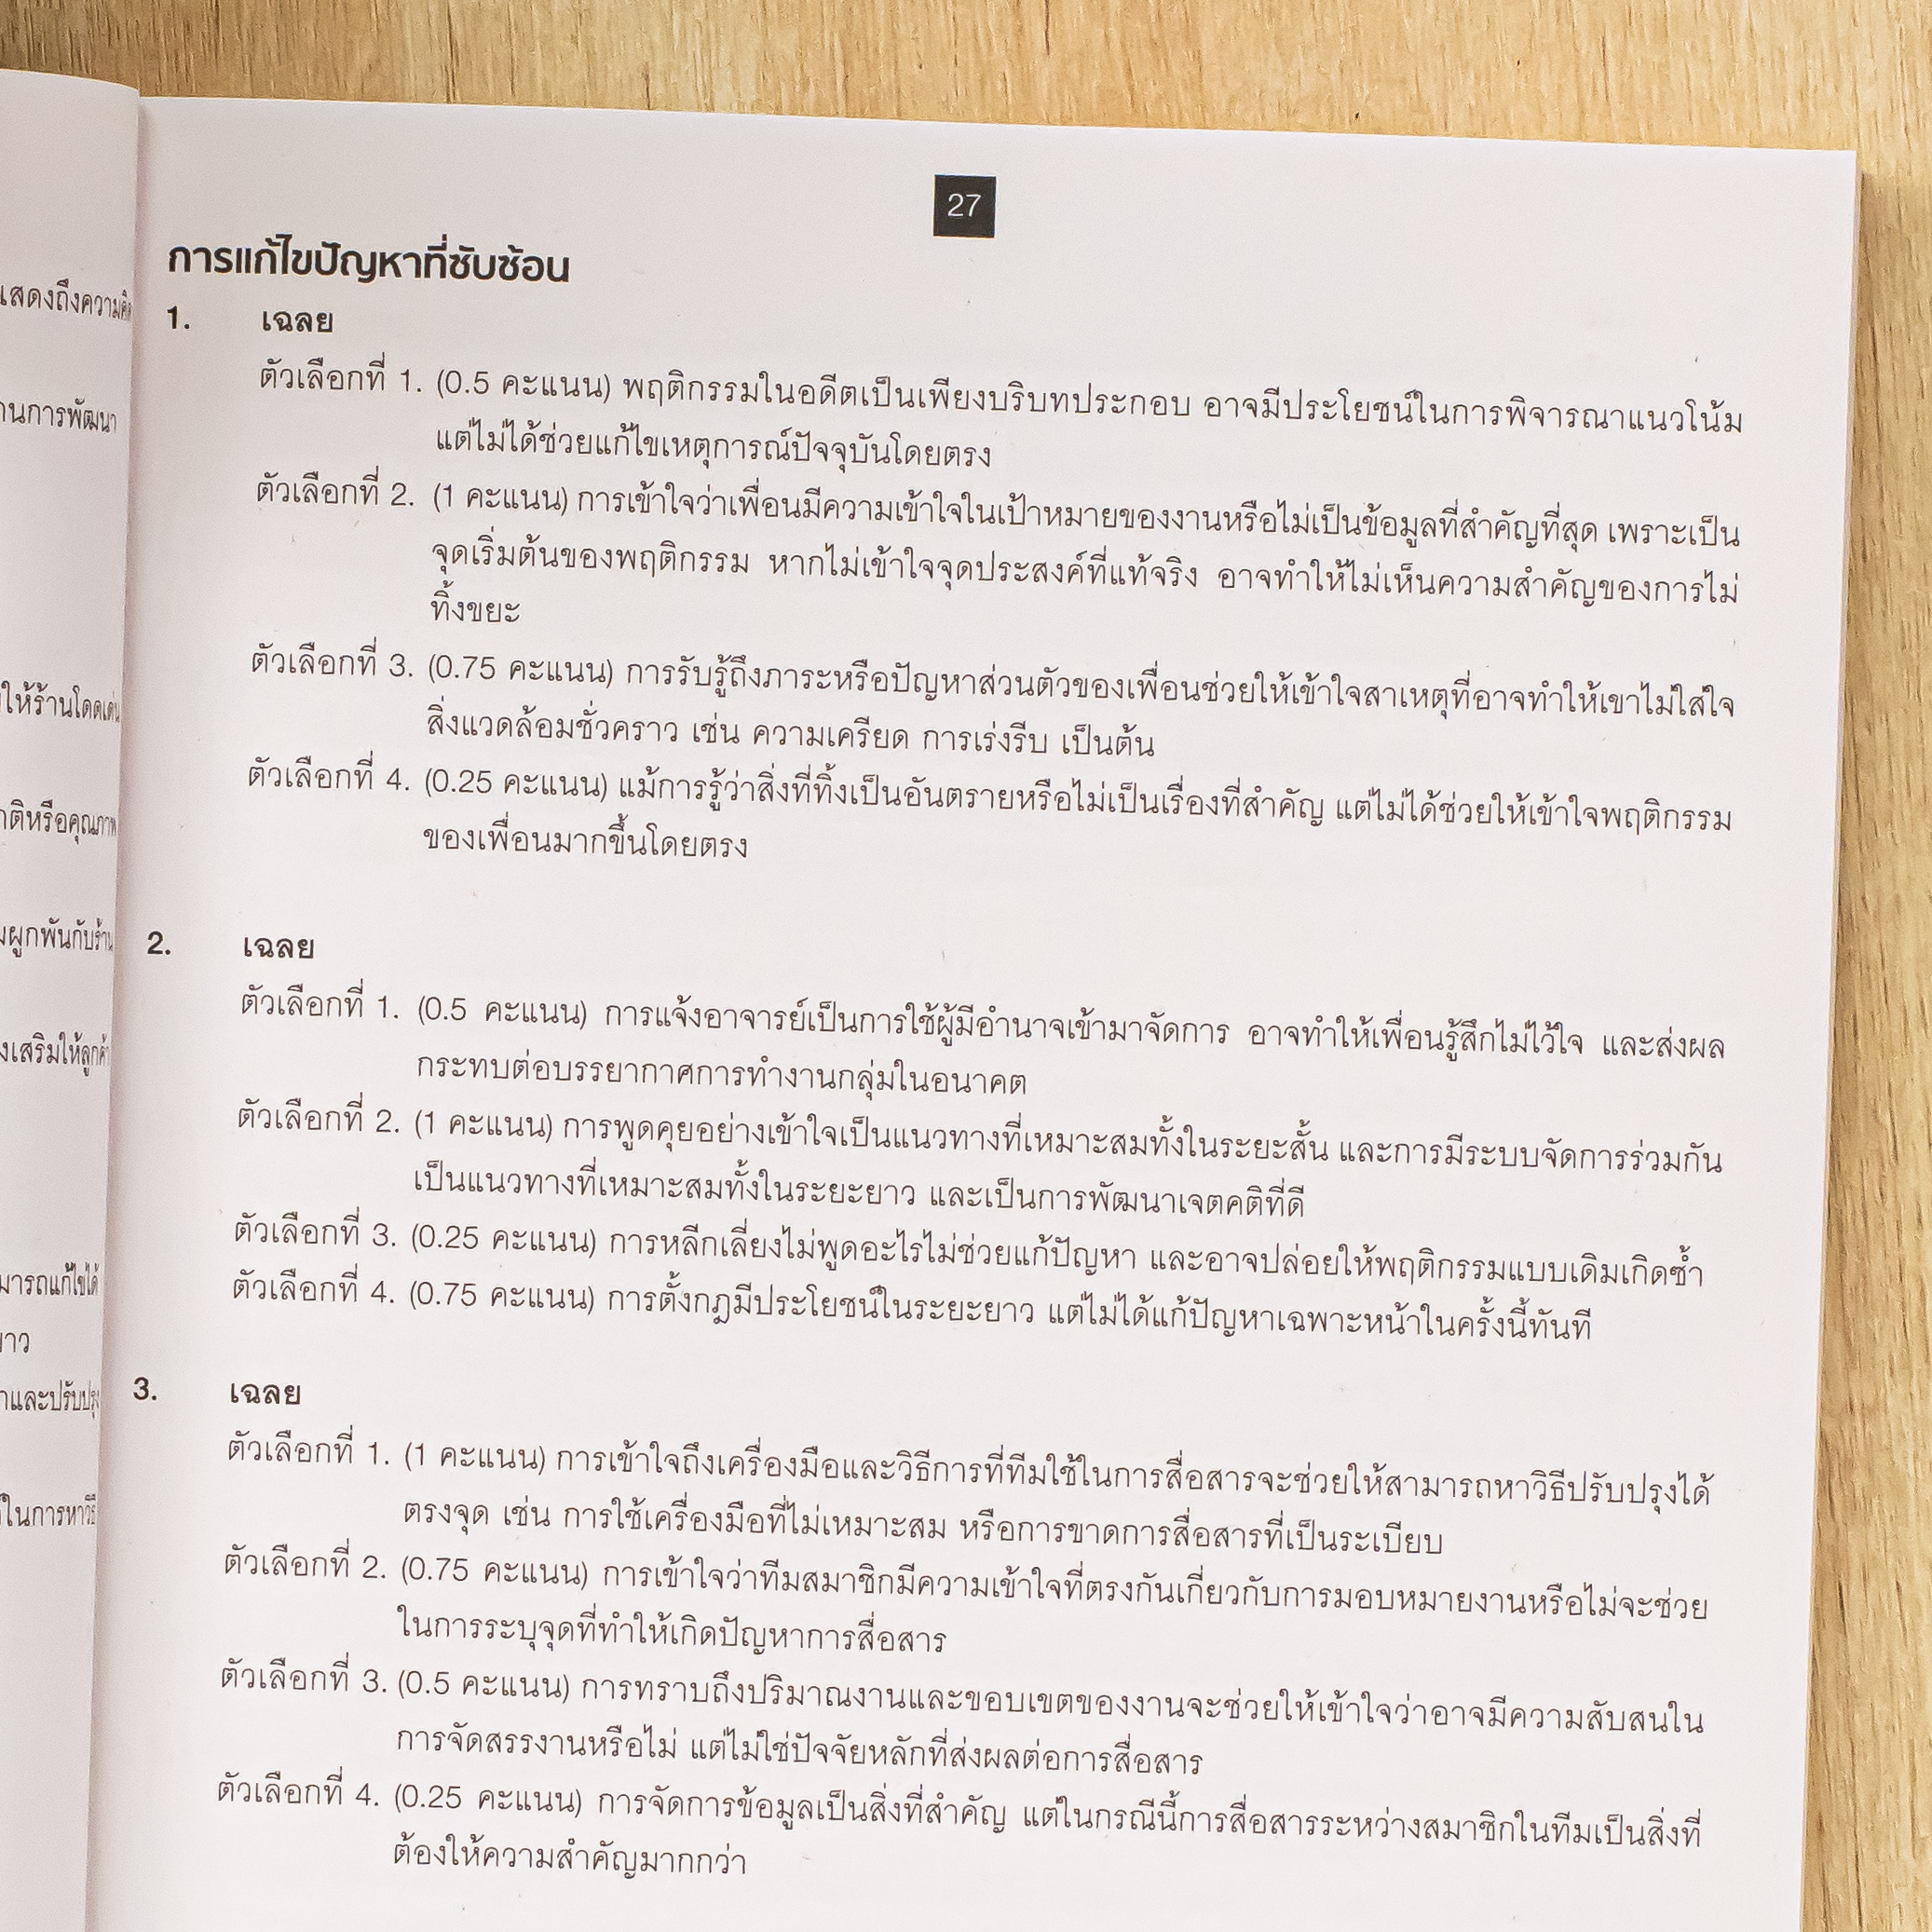 27
การแก้ไขปัญหาที่ซับซ้อน
1. เฉลย
ตัวเลือกที่ 1. (0.5 คะแนน) พฤติกรรมในอดีตเป็นเพียงบริบทประกอบ อาจมีประโยชน์ในการพิจารณาแนวโน้ม
แต่ไม่ได้ช่วยแก้ไขเหตุการณ์ปัจจุบันโดยตรง
ตัวเลือกที่ 2. (1 คะแนน) การเข้าใจว่าเพื่อนมีความเข้าใจในเป้าหมายของงานหรือไม่เป็นข้อมูลที่สำคัญที่สุด เพราะเป็น
จุดเริ่มต้นของพฤติกรรม หากไม่เข้าใจจุดประสงค์ที่แท้จริง อาจทำให้ไม่เห็นความสำคัญของการไม่
ทิ้งขยะ
ตัวเลือกที่ 3. (0.75 คะแนน) การรับรู้ถึงภาระหรือปัญหาส่วนตัวของเพื่อนช่วยให้เข้าใจสาเหตุที่อาจทำให้เขาไม่ใส่ใจ
สิ่งแวดล้อมชั่วคราว เช่น ความเครียด การเร่งรีบ เป็นต้น
ตัวเลือกที่ 4. (0.25 คะแนน) แม้การรู้ว่าสิ่งที่ทิ้งเป็นอันตรายหรือไม่เป็นเรื่องที่สำคัญ แต่ไม่ได้ช่วยให้เข้าใจพฤติกรรม
ของเพื่อนมากขึ้นโดยตรง
2. เฉลย
ตัวเลือกที่ 1. (0.5 คะแนน) การแจ้งอาจารย์เป็นการใช้ผู้มีอำนาจเข้ามาจัดการ อาจทำให้เพื่อนรู้สึกไม่ไว้ใจ และส่งผล
กระทบต่อบรรยากาศการทำงานกลุ่มในอนาคต
ตัวเลือกที่ 2. (1 คะแนน) การพูดคุยอย่างเข้าใจเป็นแนวทางที่เหมาะสมทั้งในระยะสั้น และการมีระบบจัดการร่วมกัน
เป็นแนวทางที่เหมาะสมทั้งในระยะยาว และเป็นการพัฒนาเจตคติที่ดี
ตัวเลือกที่ 3. (0.25 คะแนน) การหลีกเลี่ยงไม่พูดอะไรไม่ช่วยแก้ปัญหา และอาจปล่อยให้พฤติกรรมแบบเดิมเกิดซ้ำ
ตัวเลือกที่ 4. (0.75 คะแนน) การตั้งกฎมีประโยชน์ในระยะยาว แต่ไม่ได้แก้ปัญหาเฉพาะหน้าในครั้งนี้ทันที
3. เฉลย
ตัวเลือกที่ 1. (1 คะแนน) การเข้าใจถึงเครื่องมือและวิธีการที่ทีมใช้ในการสื่อสารจะช่วยให้สามารถหาวิธีปรับปรุงได้
ตรงจุด เช่น การใช้เครื่องมือที่ไม่เหมาะสม หรือการขาดการสื่อสารที่เป็นระเบียบ
ตัวเลือกที่ 2. (0.75 คะแนน) การเข้าใจว่าทีมสมาชิกมีความเข้าใจที่ตรงกันเกี่ยวกับการมอบหมายงานหรือไม่จะช่วย
ในการระบุจุดที่ทำให้เกิดปัญหาการสื่อสาร
ตัวเลือกที่ 3. (0.5 คะแนน) การทราบถึงปริมาณงานและขอบเขตของงานจะช่วยให้เข้าใจว่าอาจมีความสับสนใน
การจัดสรรงานหรือไม่ แต่ไม่ใช่ปัจจัยหลักที่ส่งผลต่อการสื่อสาร
ตัวเลือกที่ 4. (0.25 คะแนน) การจัดการข้อมูลเป็นสิ่งที่สำคัญ แต่ในกรณีนี้การสื่อสารระหว่างสมาชิกในทีมเป็นสิ่งที่
ต้องให้ความสำคัญมากกว่า